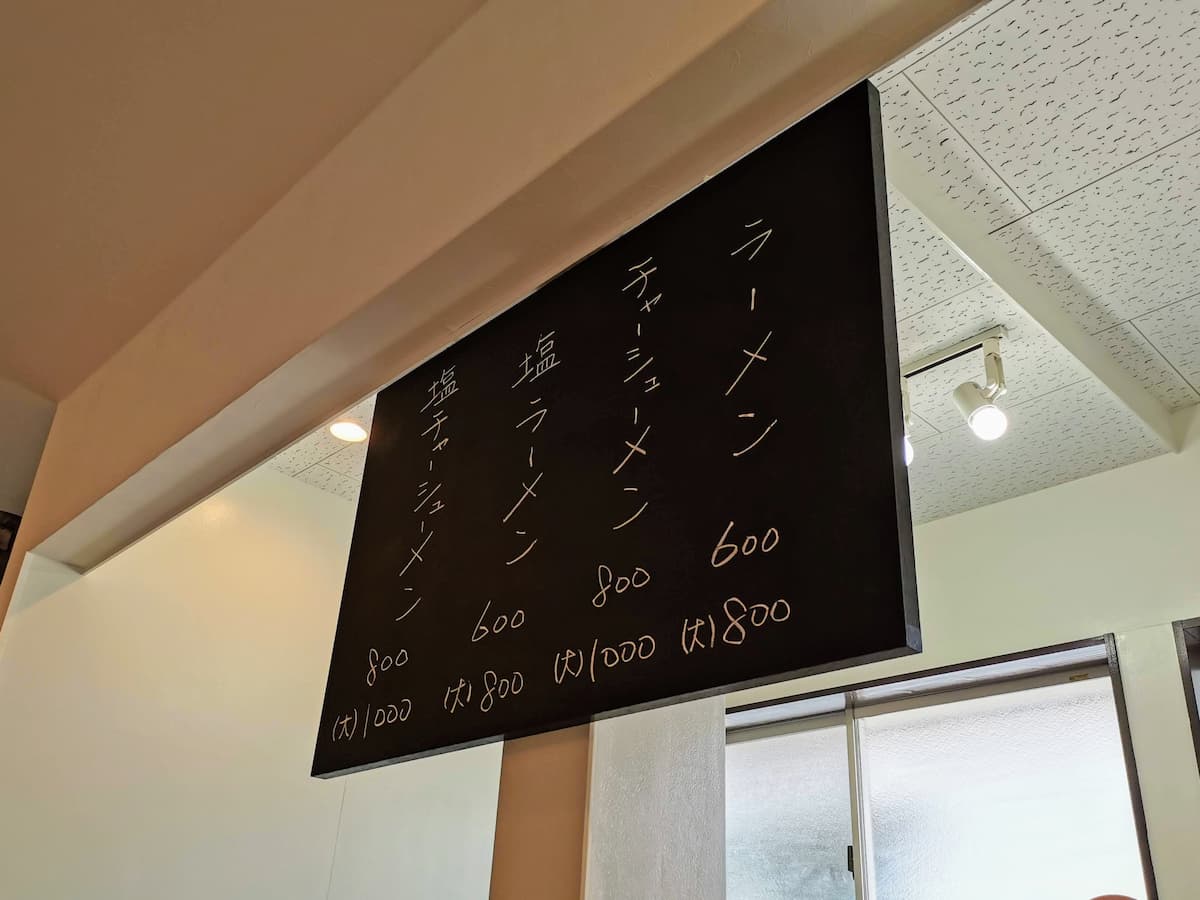 ラーメン 600
(大)800
チャーシューメン 800
(大)1000
塩ラーメン 600
(大)800
塩チャーシューメン 800
(大)1000